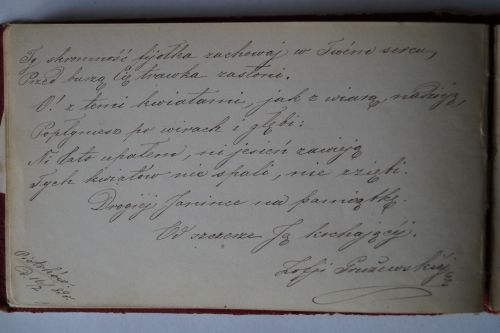 Tę skromność fijołka zachowaj w Twém sercu,
Przed burzą Cię trawka zasłoni.
O! z témi kwiatami, jak z wiarą, nadzieją,
Popłyniesz po wirach i głębi:
Ni lato upałem, ni jesień zawieją
Tych kwiatów nie spali, nie zziębi.
Drogiéj Janince na pamiątkę.
Od szczerze Ją kochającéj.
Zofji